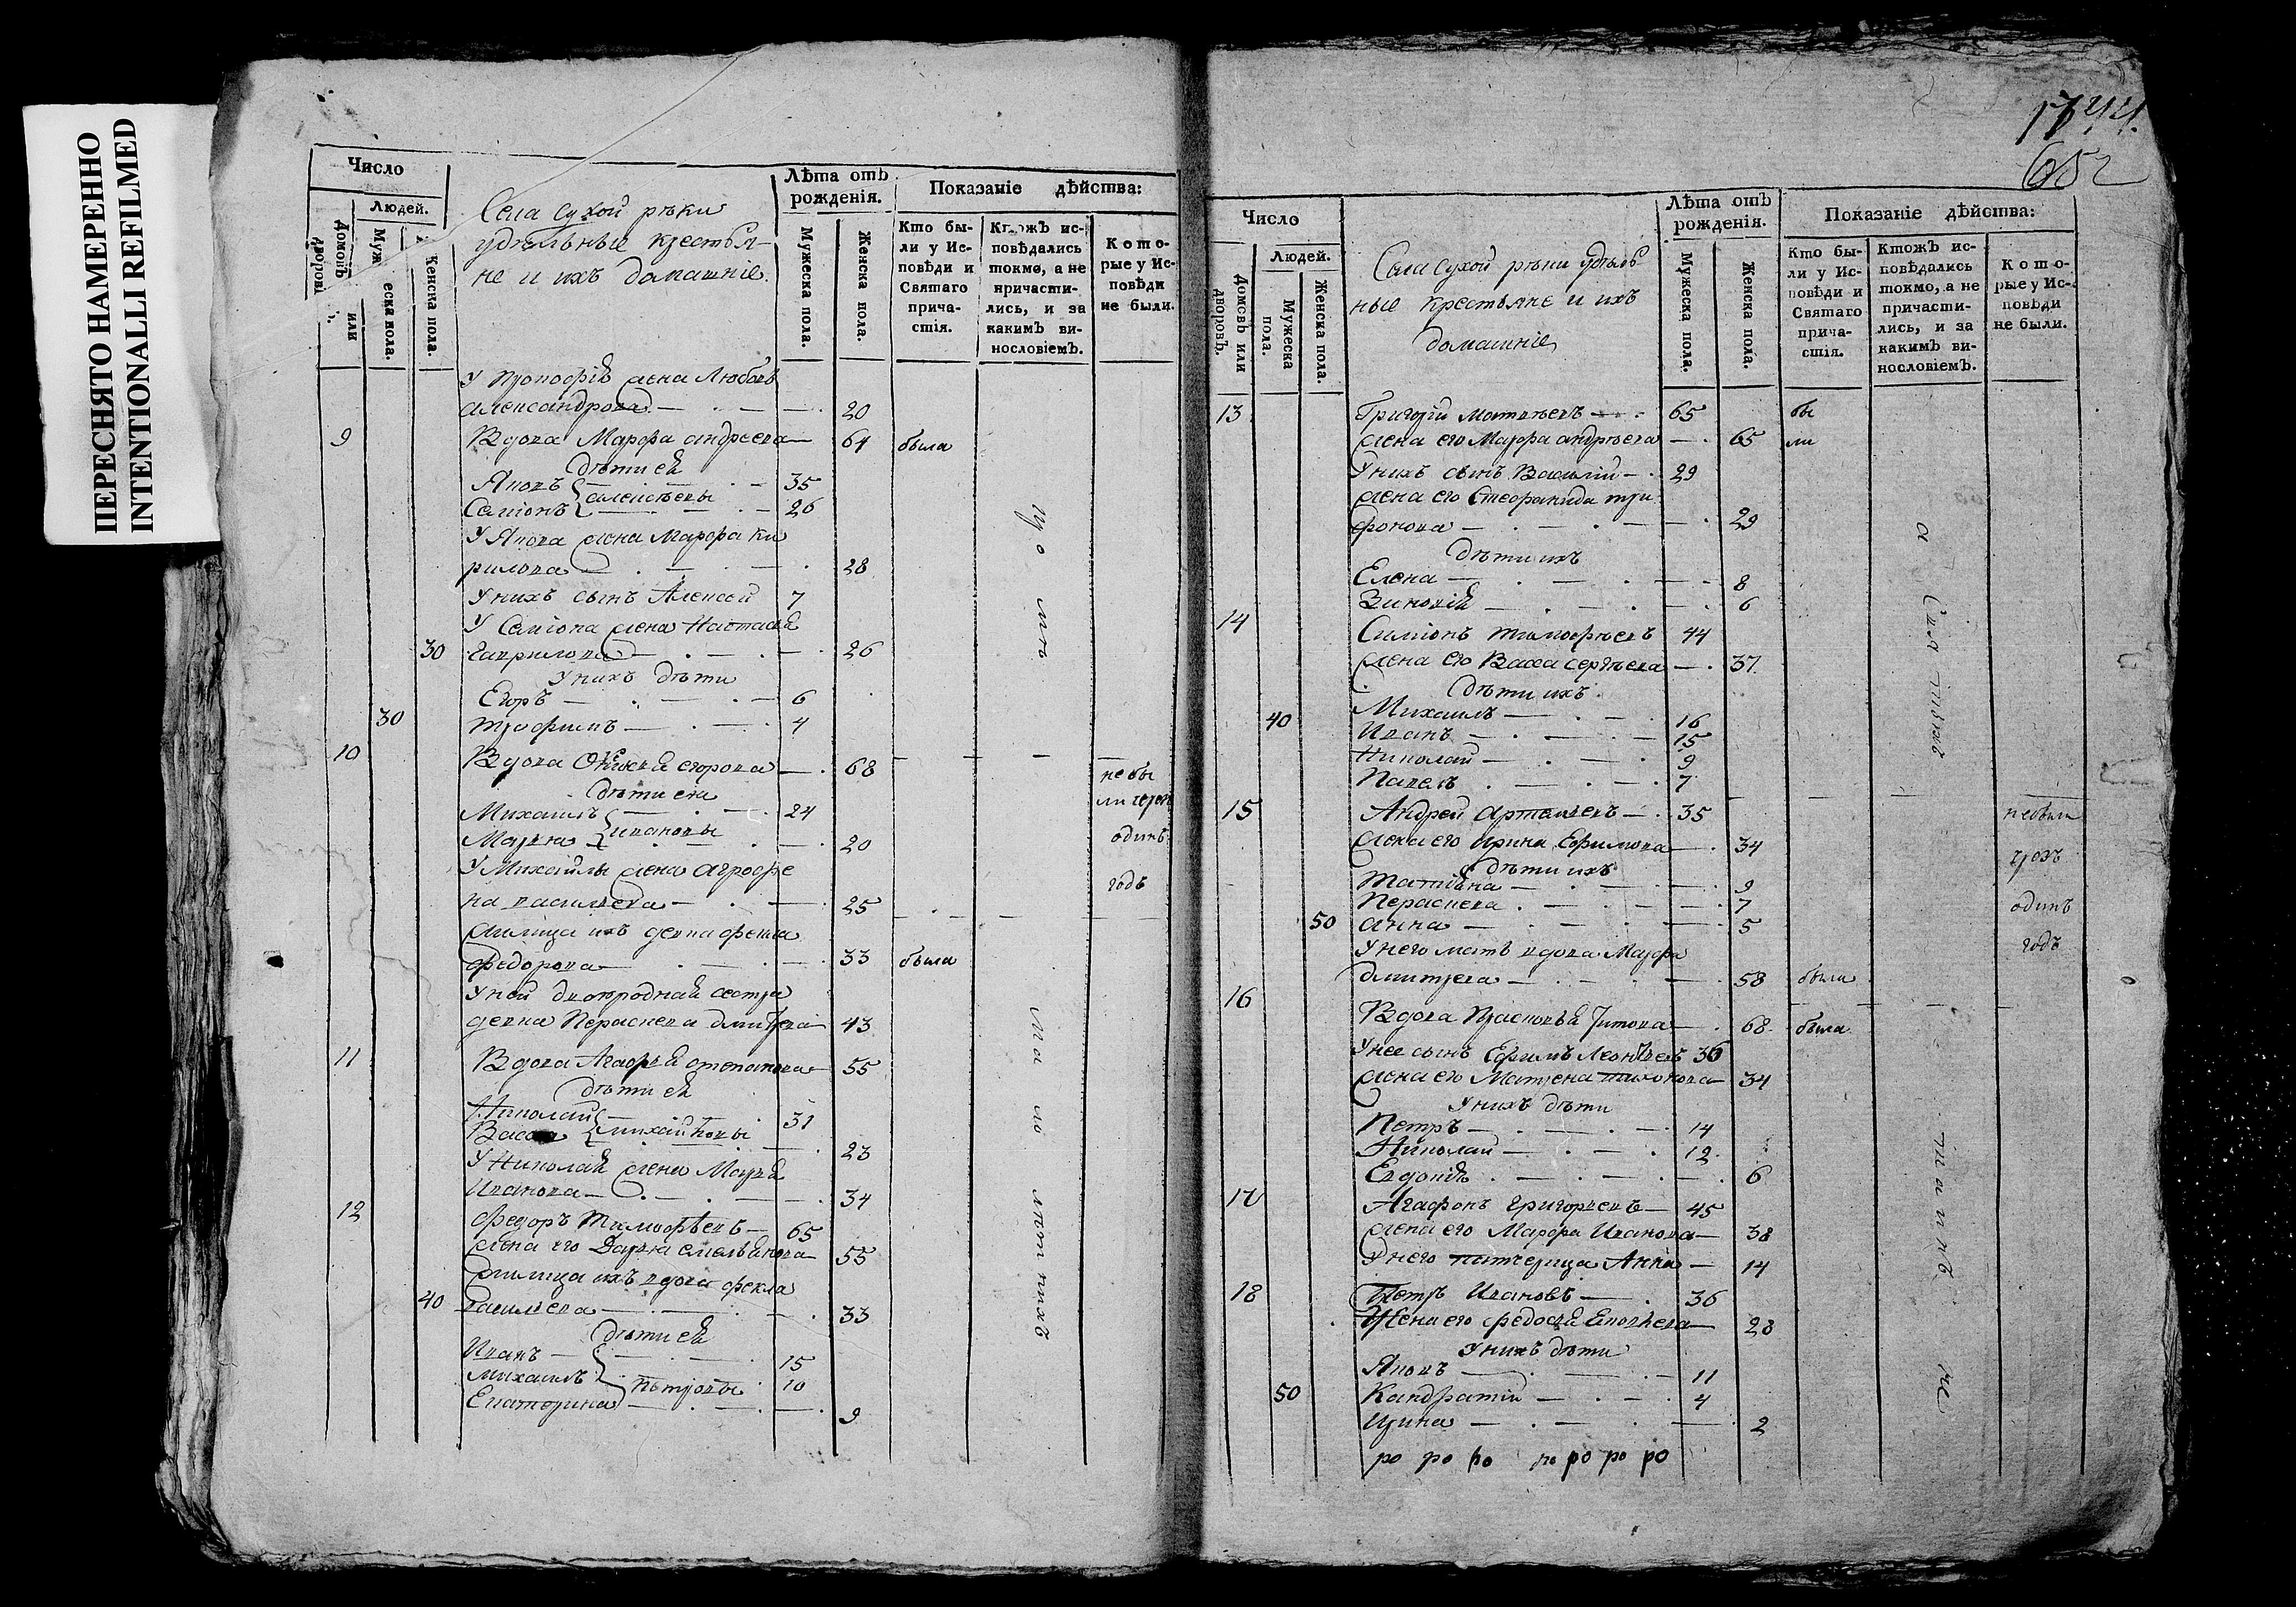 ПЕРЕСНЯТО НАМЕРЕННО
INTENTIONALLI REFILMED
Число
Людей.
Домовъ или дворовъ.
Мужеска пола.
Женска пола.
Села Сухой рѣки
удѣльные крестья-
не и ихъ домашнїе
Лѣта отъ
рожденія.
Мужеска пола.
Женска пола.
Показаніе дѣйства:
Кто бы-
ли у Ис-
повѣди и
Святаго
прича-
стія.
Ктожъ ис-
повѣдались
токмо, а не
причасти-
лись, и за
какимъ ви-
нословіемъ.
Кото-
рые у Ис-
повѣди
не были.
У Прокофія жена Любовь
александрова 20
9 Вдова Марфа андреева 64 была
дѣти ея
Яковъ 35
алексѣевы
Семіонъ 26
У Якова жена Марфа ки
рилова 28
У нихъ сынъ Алексей 7
У Семіона жена Настасья
30 Гаврилова 26
У нихъ дѣти
Егоръ 6
30 трофимъ 4
10 Вдова егорова 68 не бы
дѣти ея ли чрезъ
Михаилъ 24
ивановы одинъ
Марья 20
У Михайлы жена агрофе
на васильева 25 годъ
жилица ихъ девка фекла
федорова 33 была
У ней двоюродная сестра
девка Пераскева дмитрева 43
11 Вдова Агафья степанова 55
дѣти ея
Николай 31
михайловы
Васса 23
У Николая жена Марья
Иванова 34
12 федоръ Тимофѣевъ 65
жена его Дарья емельянова 55
жилица ихъ вдова фекла
40 васильева 33
дѣти ея
Иванъ 15
Михаилъ петровы 10
Екатерина 9
1744.
652
Число
Людей.
Домовъ или дворовъ.
Мужеска пола.
Женска пола.
Села Сухой рѣки удѣль
ные крестьяне и ихъ
домашнїе
Лѣта отъ
рожденія.
Мужеска пола.
Женска пола.
Показаніе дѣйства:
Кто бы-
ли у Ис-
повѣди и
Святаго
прича-
стія.
Ктожъ ис-
повѣдались
токмо, а не
причасти-
лись, и за
какимъ ви-
нословіемъ.
Кото-
рые у Ис-
повѣди
не были.
13 Григорій матвѣевъ 65 бы
жена его Марфа андрѣева 65 ли
У нихъ сынъ Василій 29
жена его Стефанида три
фонова 29
дѣти ихъ
Елена 8
Зиновія 6
14 Симіонъ тимофѣевъ 44
жена его Васса сергѣева 37
дѣти ихъ
40 Михаилъ 16
Иванъ 15
Николай 9
Павелъ 7
15 Андрей Артемьевъ 35 не были
жена его Ирина Ефимова 34
дѣти ихъ чрезъ
Татіяна 9
Пераскева 7 одинъ
50 анна 5
У него мать вдова Марфа годъ
дмитрева 58 была
16 Вдова Прасковья Титова 68 была
У нее сынъ Ефимъ Леонтьевъ 36
жена его Матрена тихонова 34
У нихъ дѣти
Петръ 14
Николай 12
Евдокія 6
17 Агафонъ григорьевъ 45
жена его Марфа Иванова 38
У него патчерица Анна 14
18 Петръ Ивановъ 36
Жена его федосья 28
У нихъ дѣти
Яковъ 11
50 Кандратій 4
Ирина 2
ро ро ро ро ро ро ро